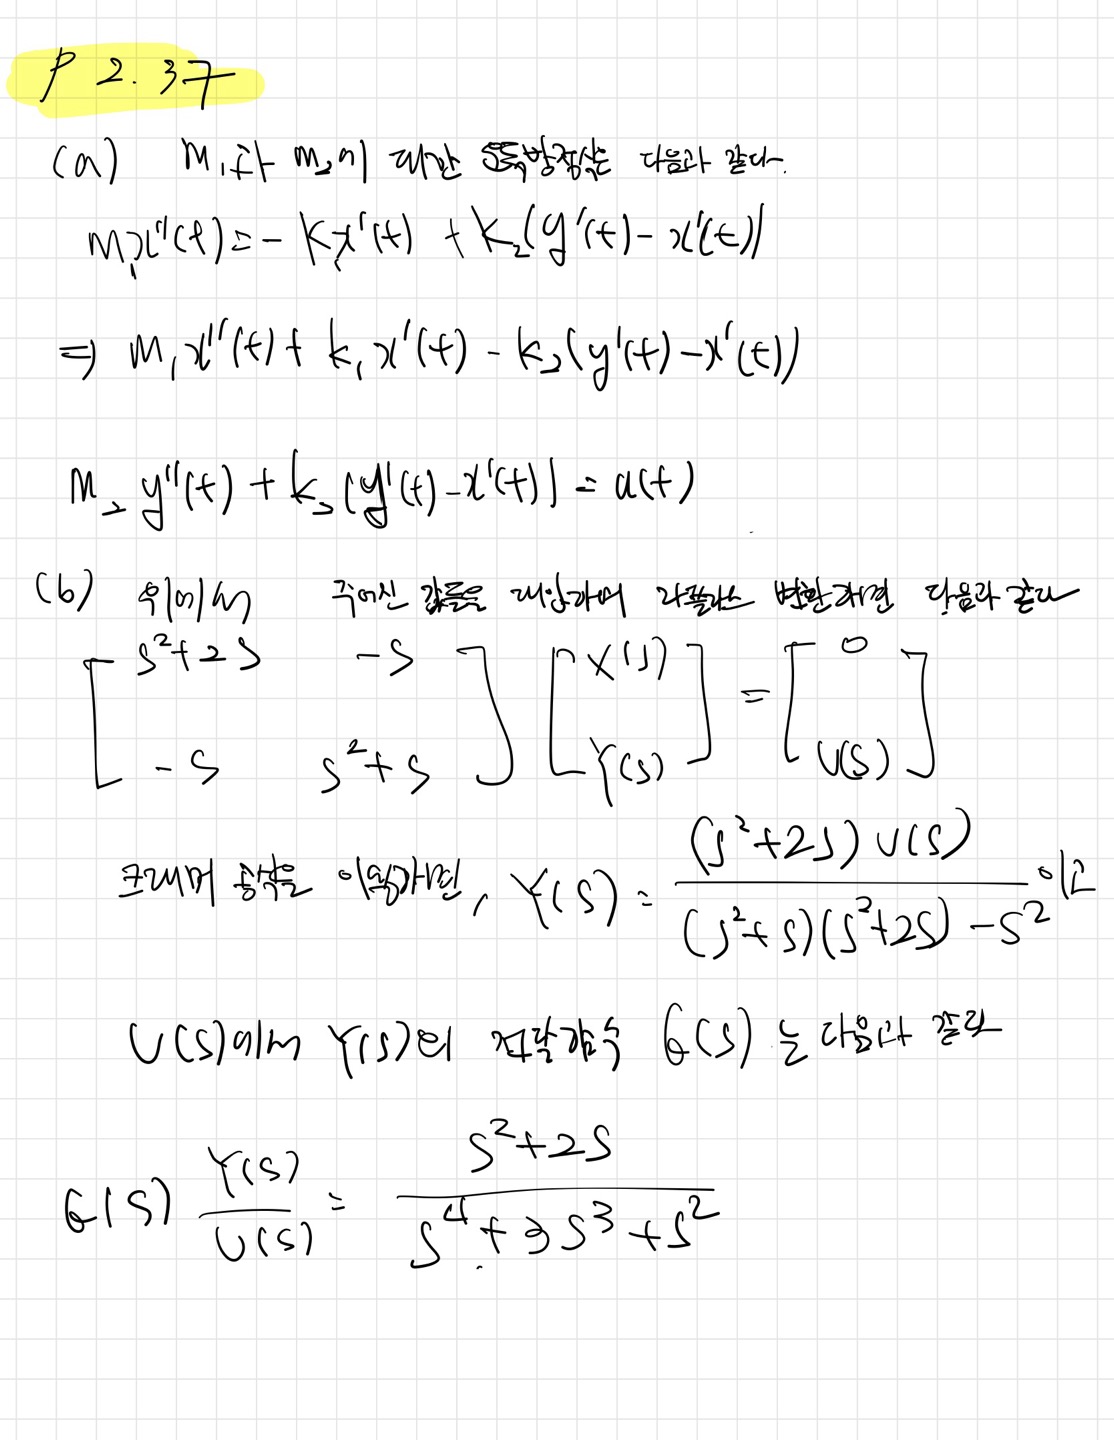 P 2.37
(a) m₁과 m₂에 대한 운동방정식은 다음과 같다.
m₁x''(t) = - k₁x'(t) + k₂(y'(t) - x'(t))
⇒ m₁x''(t) + k₁x'(t) - k₂(y'(t) - x'(t))
m₂y''(t) + k₂(y'(t) - x'(t)) = u(t)
(b) 위에서 주어진 값들을 대입하여 라플라스 변환하면 다음과 같다
[ s²+2s -s ] [ X(s) ] = [ 0 ]
[ -s s²+s ] [ Y(s) ] [ U(s) ]
크래머 공식을 이용하면, Y(s) = (s²+2s)U(s) / (s²+s)(s²+2s) - s² 이고
U(s)에서 Y(s)의 전달함수 G(s)는 다음과 같다
G(s) Y(s)/U(s) = s²+2s / s⁴+3s³+s²